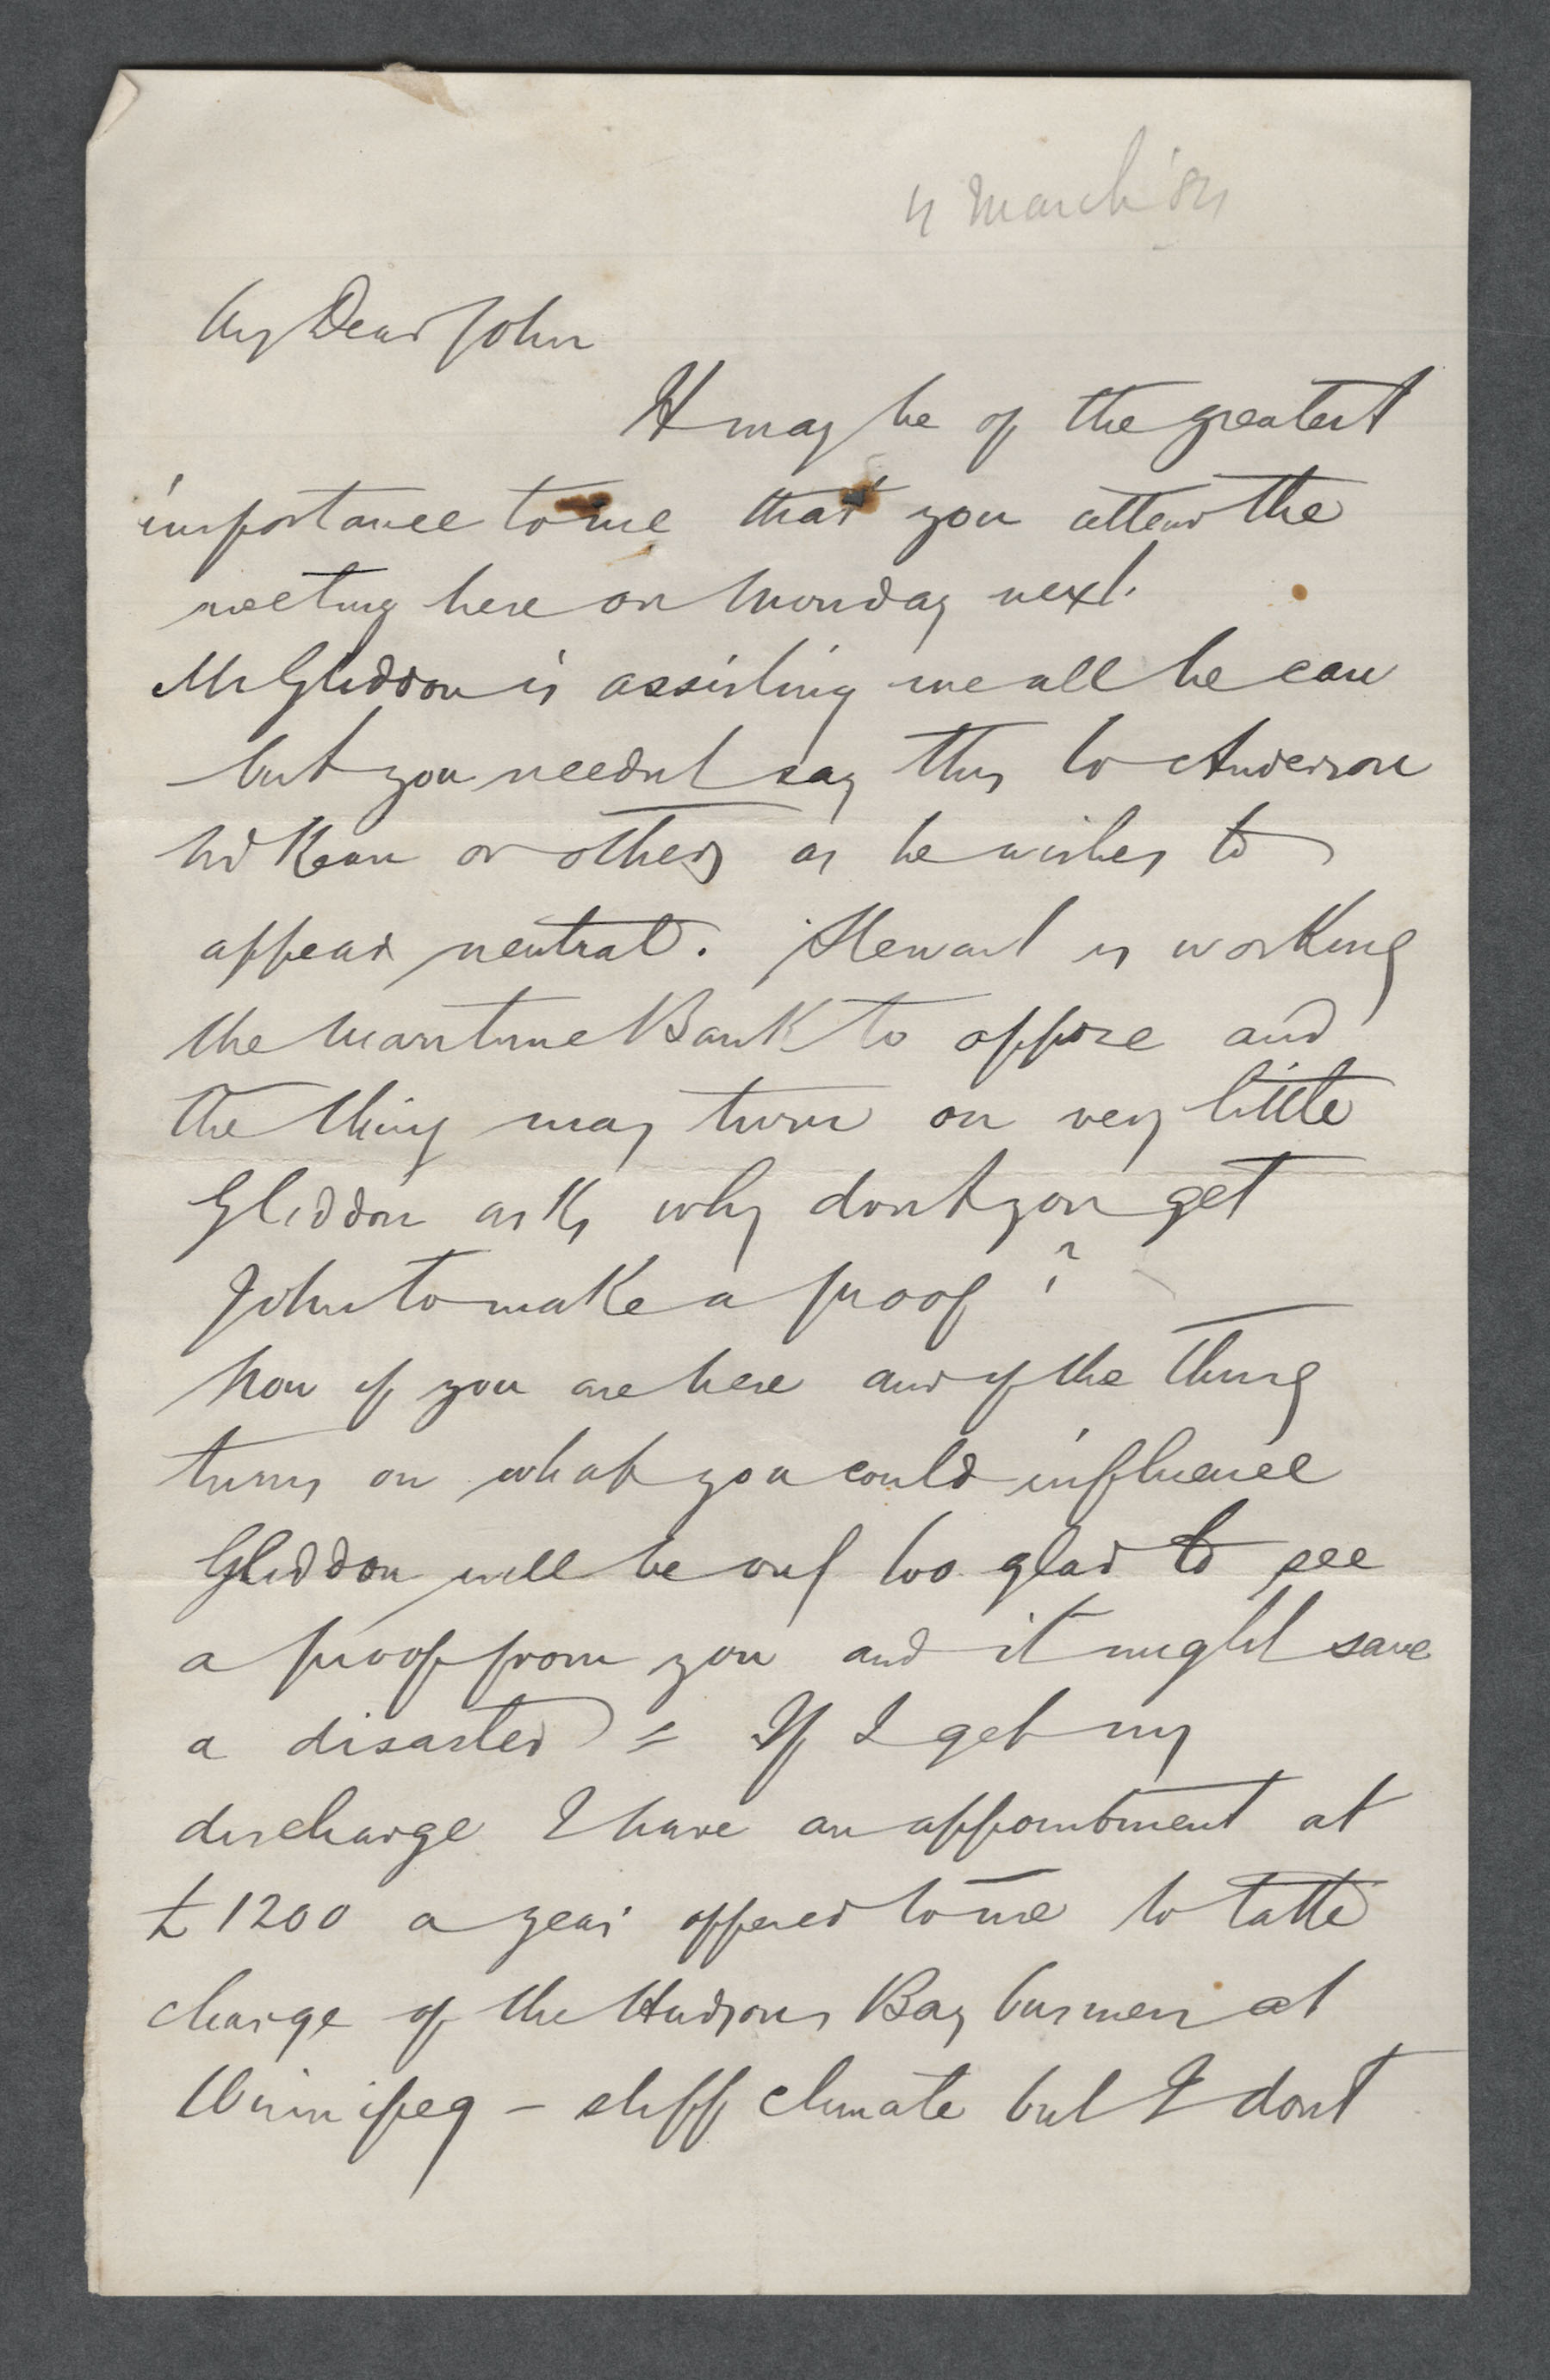 4 March '84
My Dear John
It may be of the greatest
importance to me that you attend the
meeting here on Monday next.
Mr Gliddon is assisting me all he can
but you neednt say this to Anderson
or others as he wishes to
appear neutral. Stewart is working
the Maritime Bank to oppose and
the thing may turn on very little
Gliddon asks why dont you get
John to make a proof ?
Now if you are here and if the thing
turns on what you could influence
Gliddon will be only too glad to see
a proof from you and it might save
a disaster = If I get my
discharge I have an appointment at
£1200 a year offered to me to take
charge of the Hudsons Bay business at
Winnipeg – stiff climate but I dont